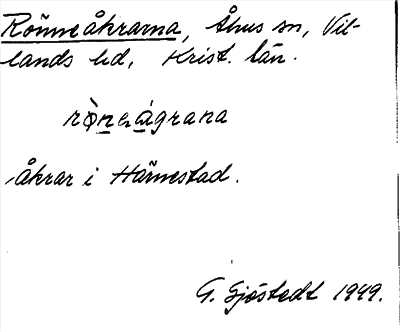 Rönneåkrarna, Åhus sn, Vil-
lands hd, Krist. län.
rò̱nɐá̱grana
Åkrar i Härnestad.
G. Sjöstedt 1949.